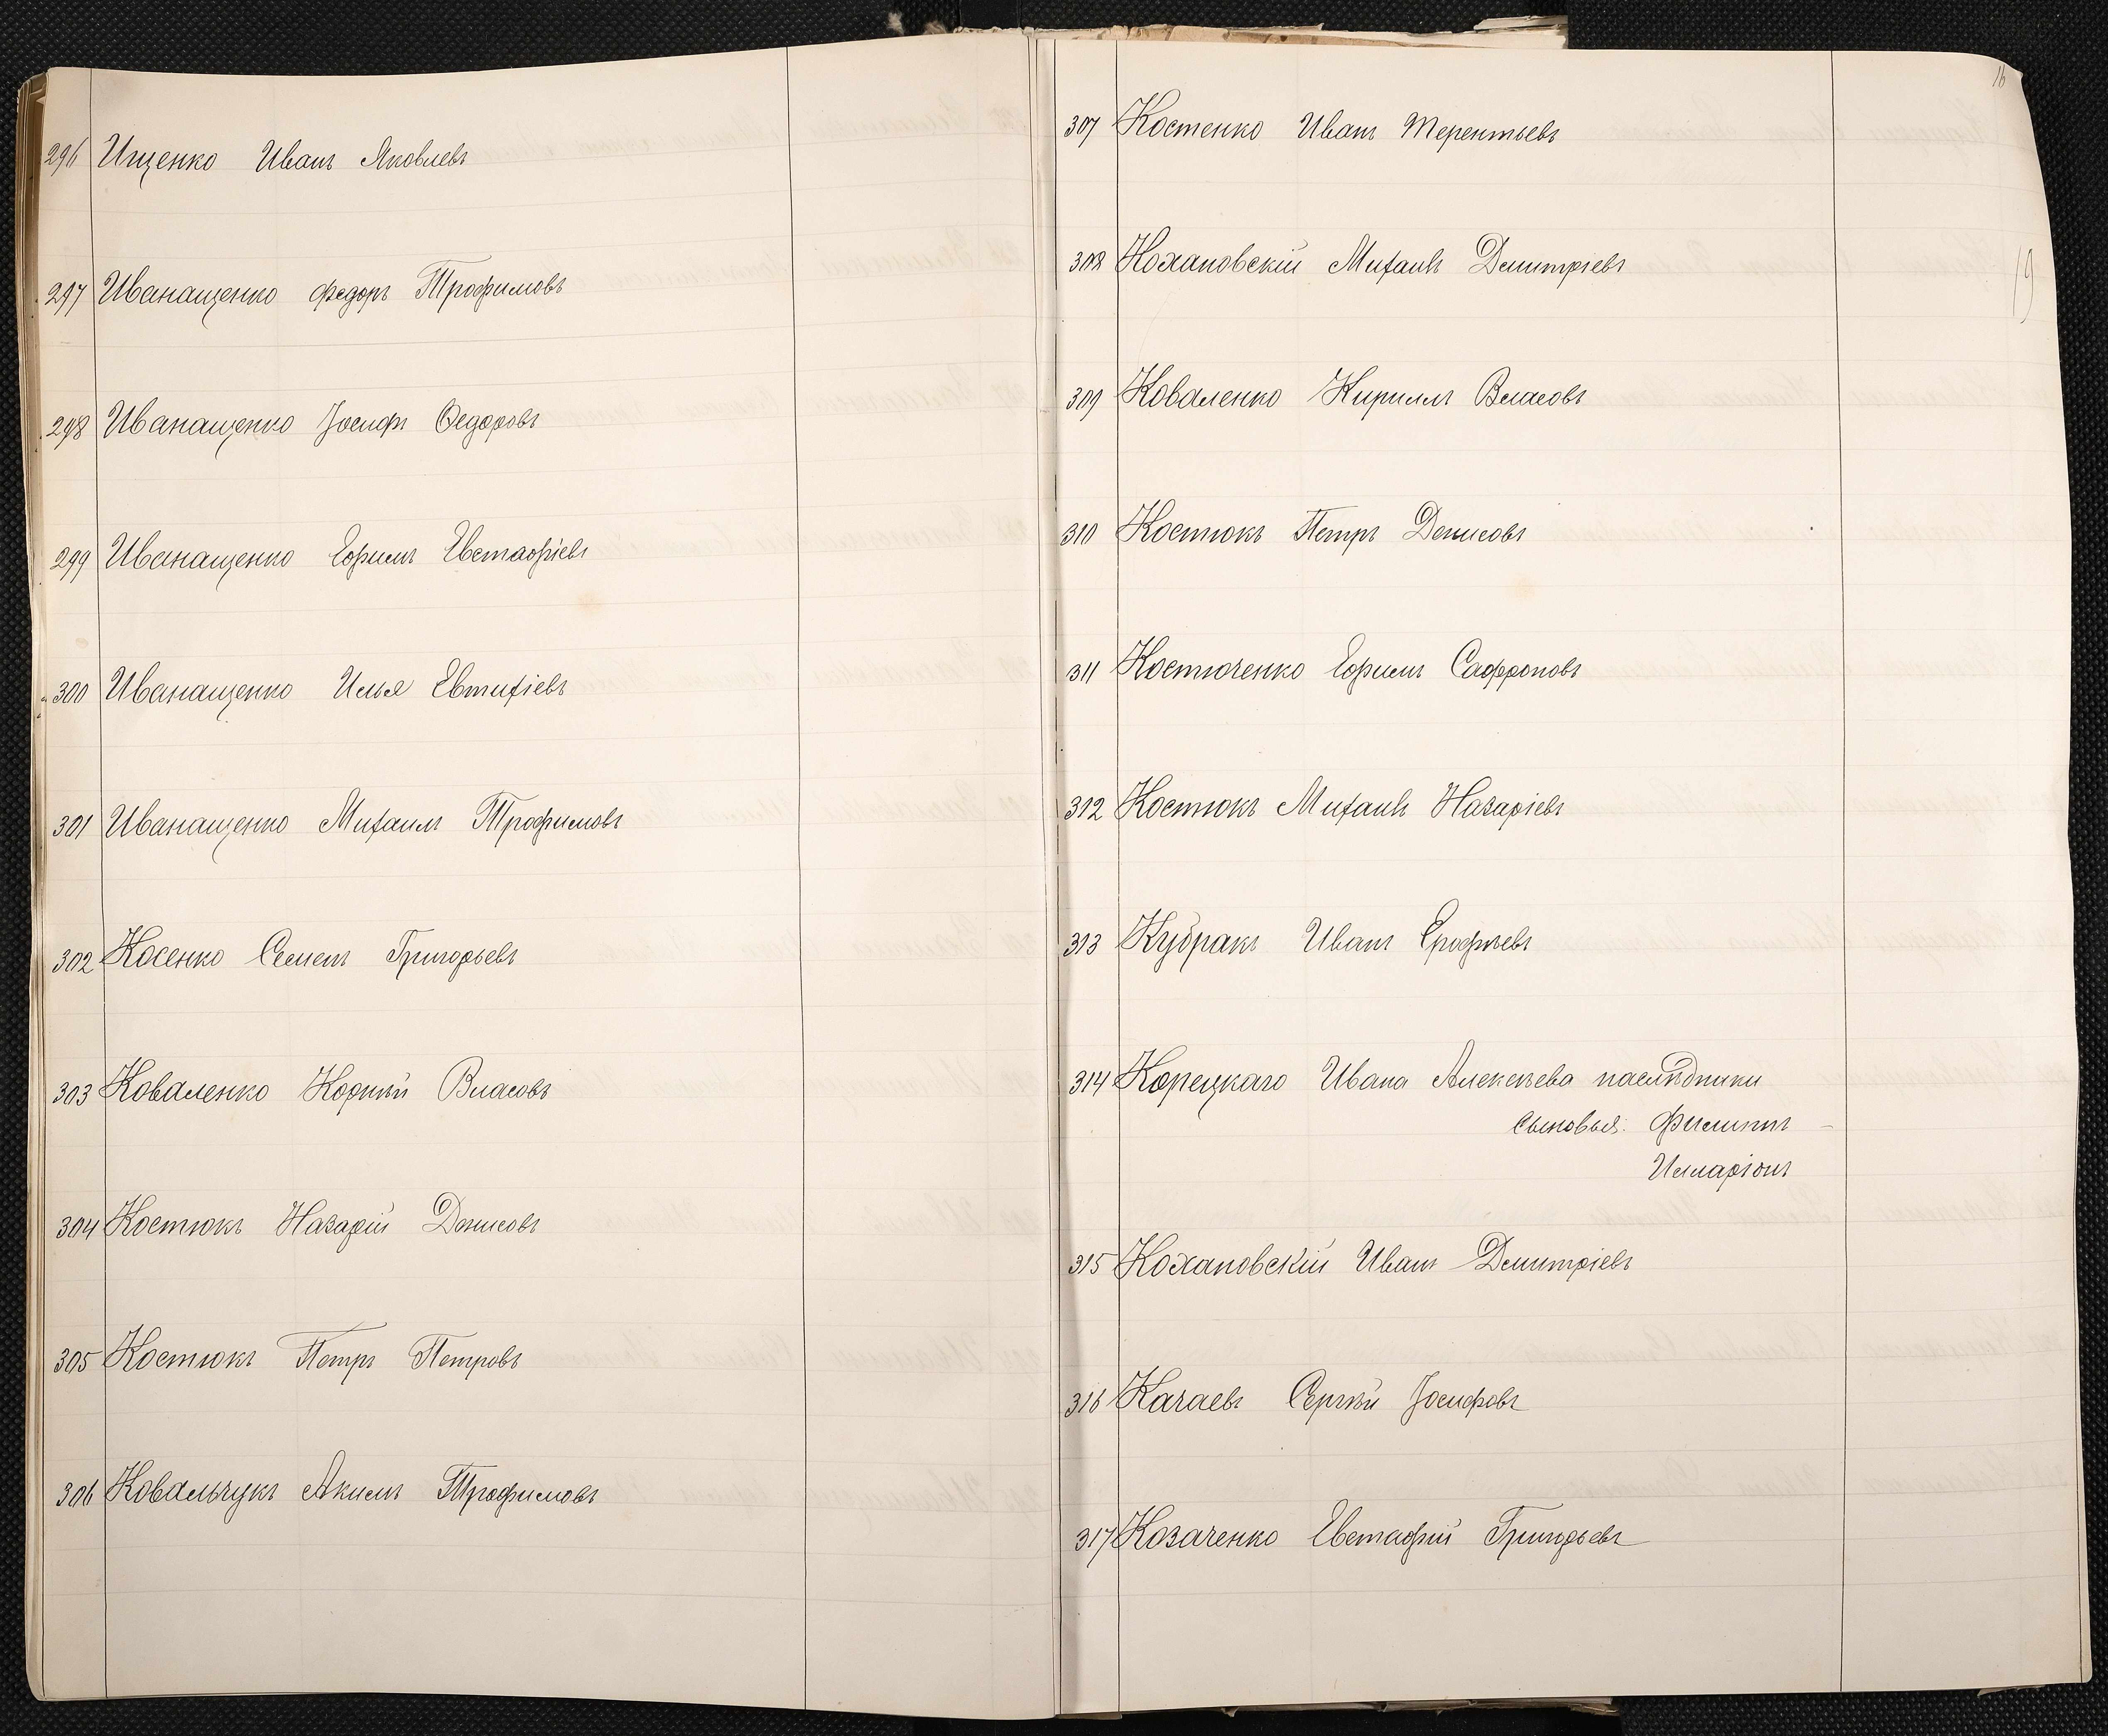 296 Ищенко Иванъ Яковлевъ
297 Иванащенко Федоръ Трофимовъ
298 Иванащенко Іосифъ Ѳедоровъ
299 Иванащенко Ефимъ Евстафіевъ
300 Иванащенко Илья Евтихіевъ
301 Иванащенко Михаилъ Трофимовъ
302 Косенко Семенъ Григорьевъ
303 Коваленко Корнѣй Власовъ
304 Костюкъ Назарій Денисовъ
305 Костюкъ Петръ Петровъ
306 Ковальчукъ Акимъ Трофимовъ
16
19
307 Костенко Иванъ Терентьевъ
308 Кохановскій Михаилъ Дмитріевъ
309 Коваленко Кириллъ Власовъ
310 Костюкъ Петръ Денисовъ
311 Костюченко Ефимъ Сафроновъ
312 Костюкъ Михаилъ Назаріевъ
313 Кубракъ Иванъ Ерофѣевъ
314 Корецкаго Ивана Алексѣева наслѣдники
сыновья: Филиппъ
Илларіонъ
315 Кохановскій Иванъ Дмитріевъ
316 Качаевъ Сергѣй Іосифовъ
317 Козаченко Евстафій Григорьевъ